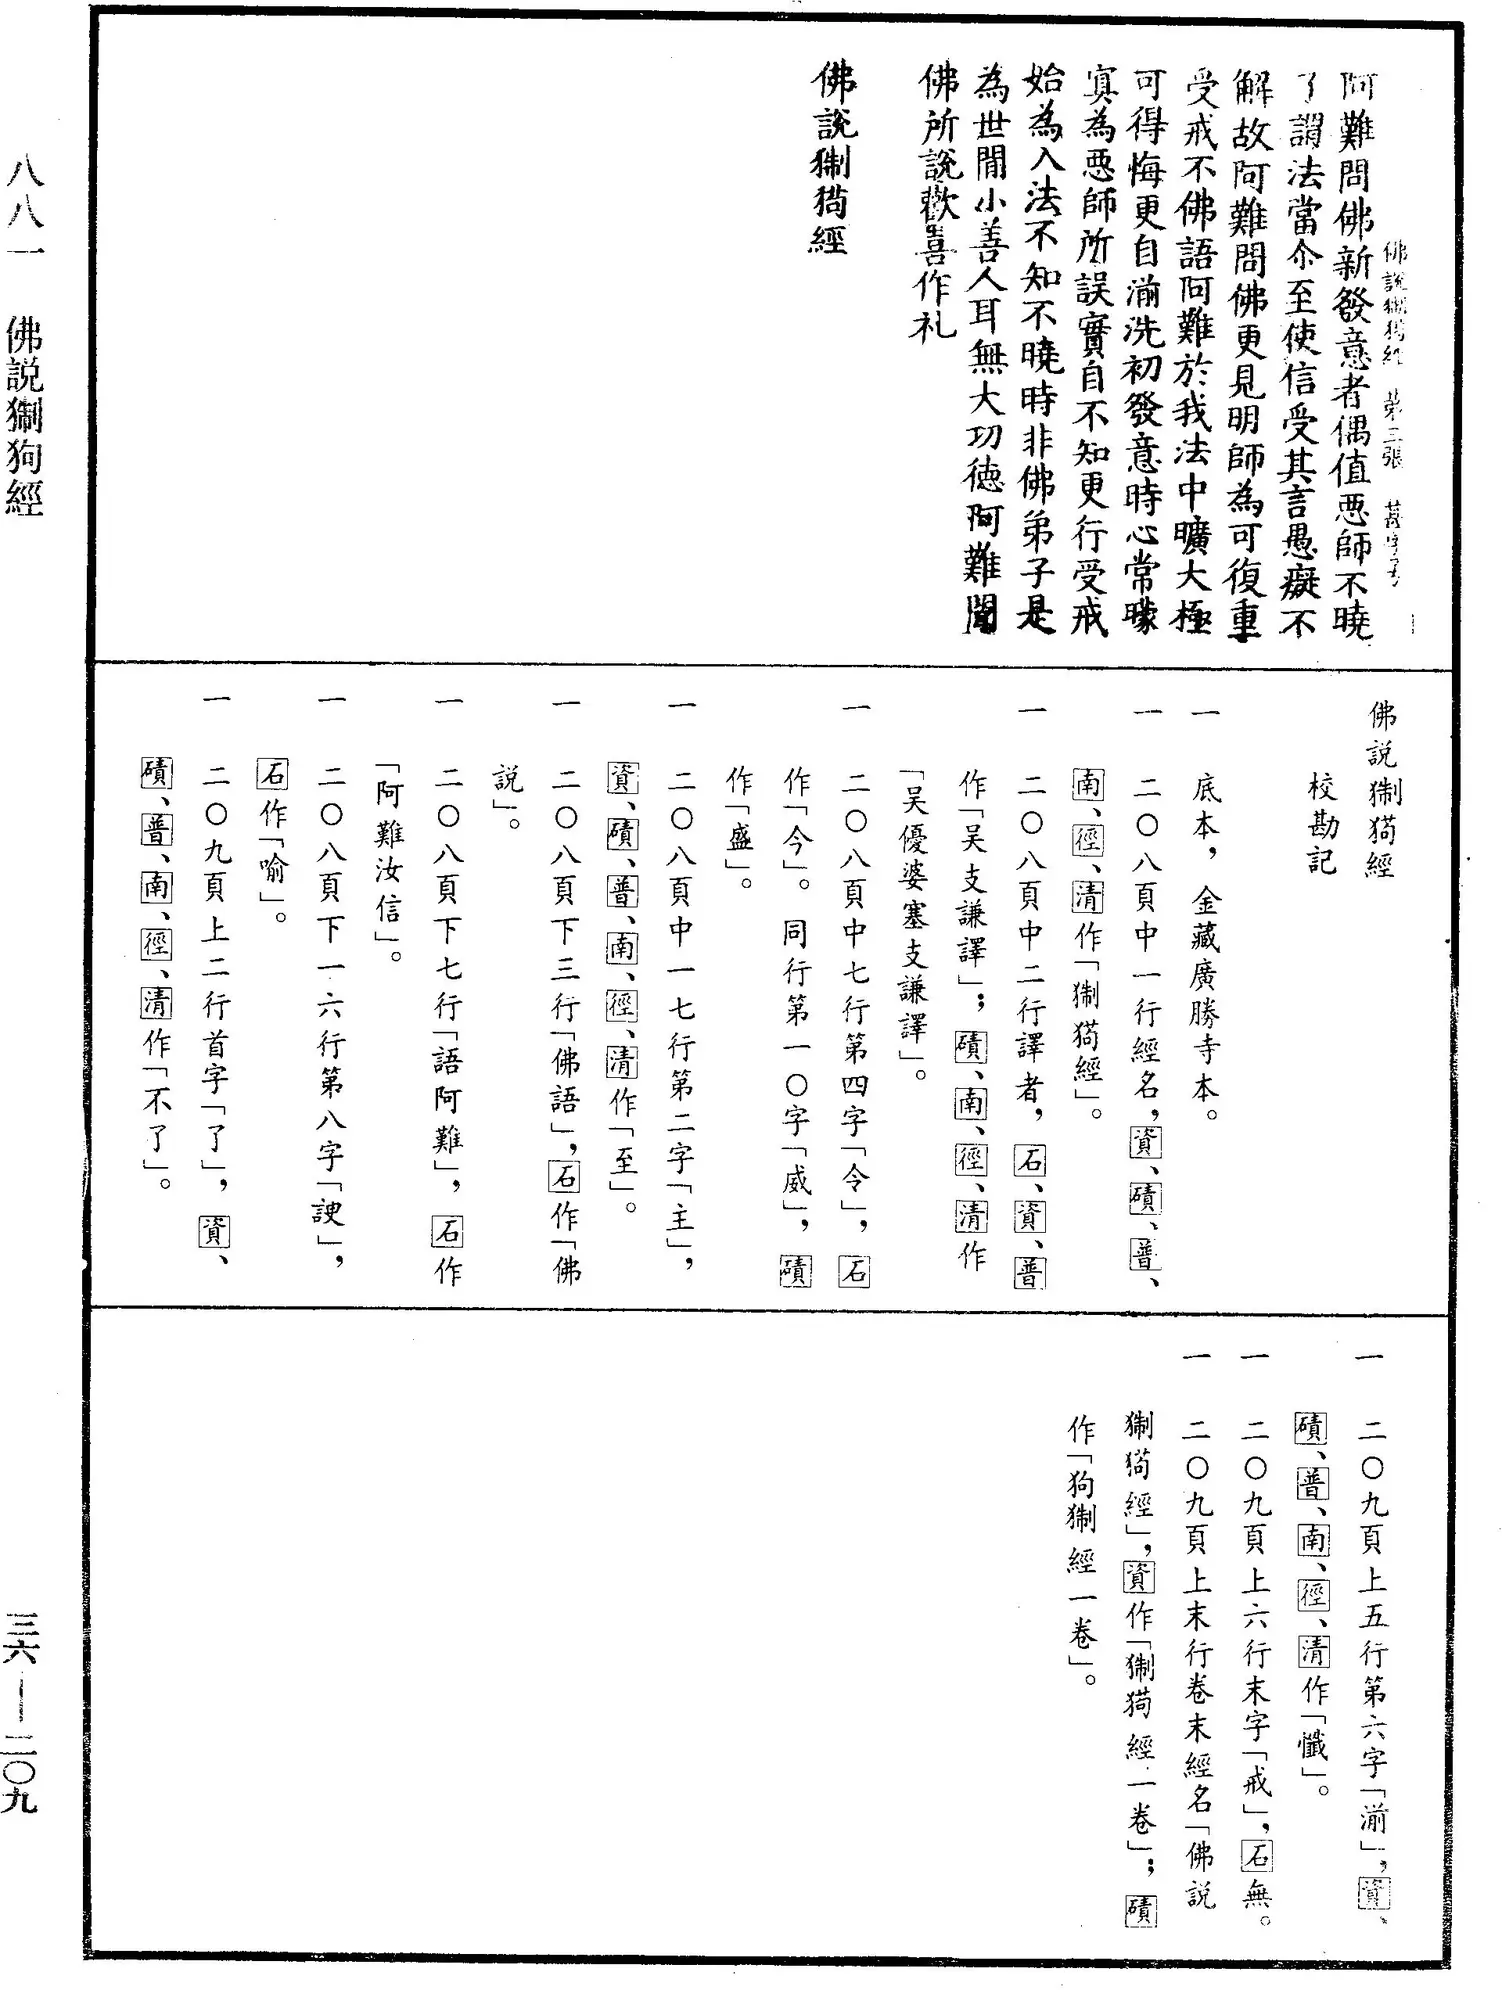 佛說猘猘經　第三張　甚字号
阿難問佛新發意者偶值惡師不曉
了謂法當尒至使信受其言愚癡不
解故阿難問佛更見明師為可復重
受戒不佛語阿難於我法中曠大極
可得悔更自湔洗初發意時心常曚
寞為惡師所誤實自不知更行受戒
始為入法不知不曉時非佛弟子是
為世閒小善人耳無大功德阿難聞
佛所說歡喜作礼
佛說猘㺃經
佛說猘㺃經
校勘記
一　底本，金藏廣勝寺本。
一　二〇八頁中一行經名，資、磧、普、
南、徑、清作「猘㺃經」。
一　二〇八頁中二行譯者，石、資、普
作「吴支謙譯」；磧、南、徑、清作
「吴優婆塞支謙譯」。
一　二〇八頁中七行第四字「令」，石
作「今」。同行第一〇字「威」，磧
作「盛」。
一　二〇八頁中一七行第二字「主」，
資、磧、普、南、徑、清作「至」。
一　二〇八頁下三行「佛語」，石作「佛
説」。
一　二〇八頁下七行「語阿難」，石作
「阿難汝信」。
一　二〇八頁下一六行第八字「諛」，
石作「喻」。
一　二〇九頁上二行首字「了」，資、
磧、普、南、徑、清作「不了」。
一　二〇九頁上五行第六字「湔」，資、
磧、普、南、徑、清作「懺」。
一　二〇九頁上六行末字「戒」，石無。
一　二〇九頁上末行卷末經名「佛説
猘㺃經」，資作「猘㺃經一卷」；磧
作「狗猘經一卷」。
八八一　佛説猘狗經
三六——二〇九